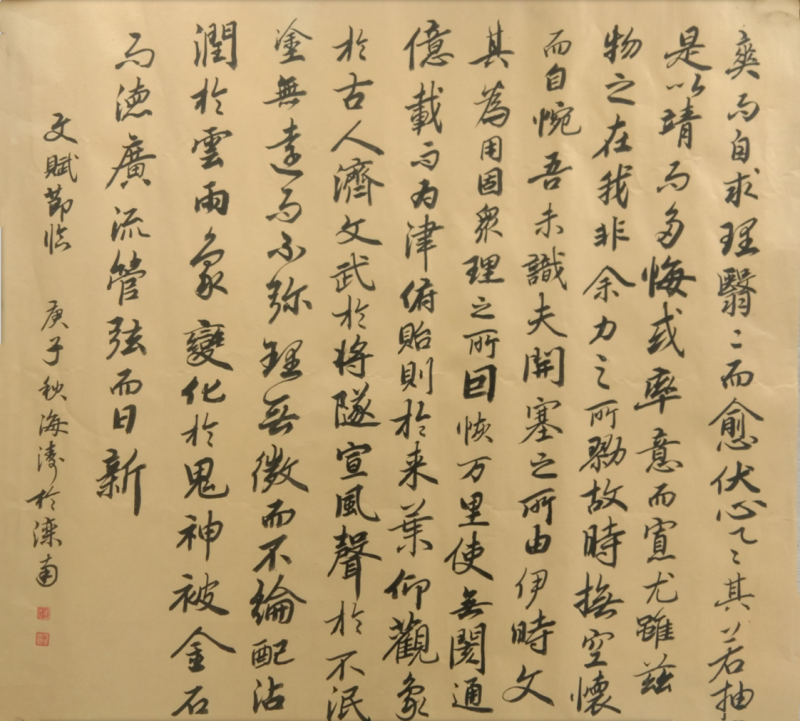 爽而自求理翳〻而愈伏心乙〻其若抽
是以靖而多悔或率意而寡尤雖茲
物之在我非余力之所勠故時撫空懷
而自惋吾未識夫開塞之所由伊時文
其為用固衆理之所因恢万里使無閡通
億載而為津俯貽則於来葉仰觀象
於古人濟文武於將隧宣風聲於不泯
塗無遠而不弥理無微而不綸配沾
潤於雲雨象變化於鬼神被金石
而德廣流管弦而日新
文賦節臨 庚子秋海濤於滦南